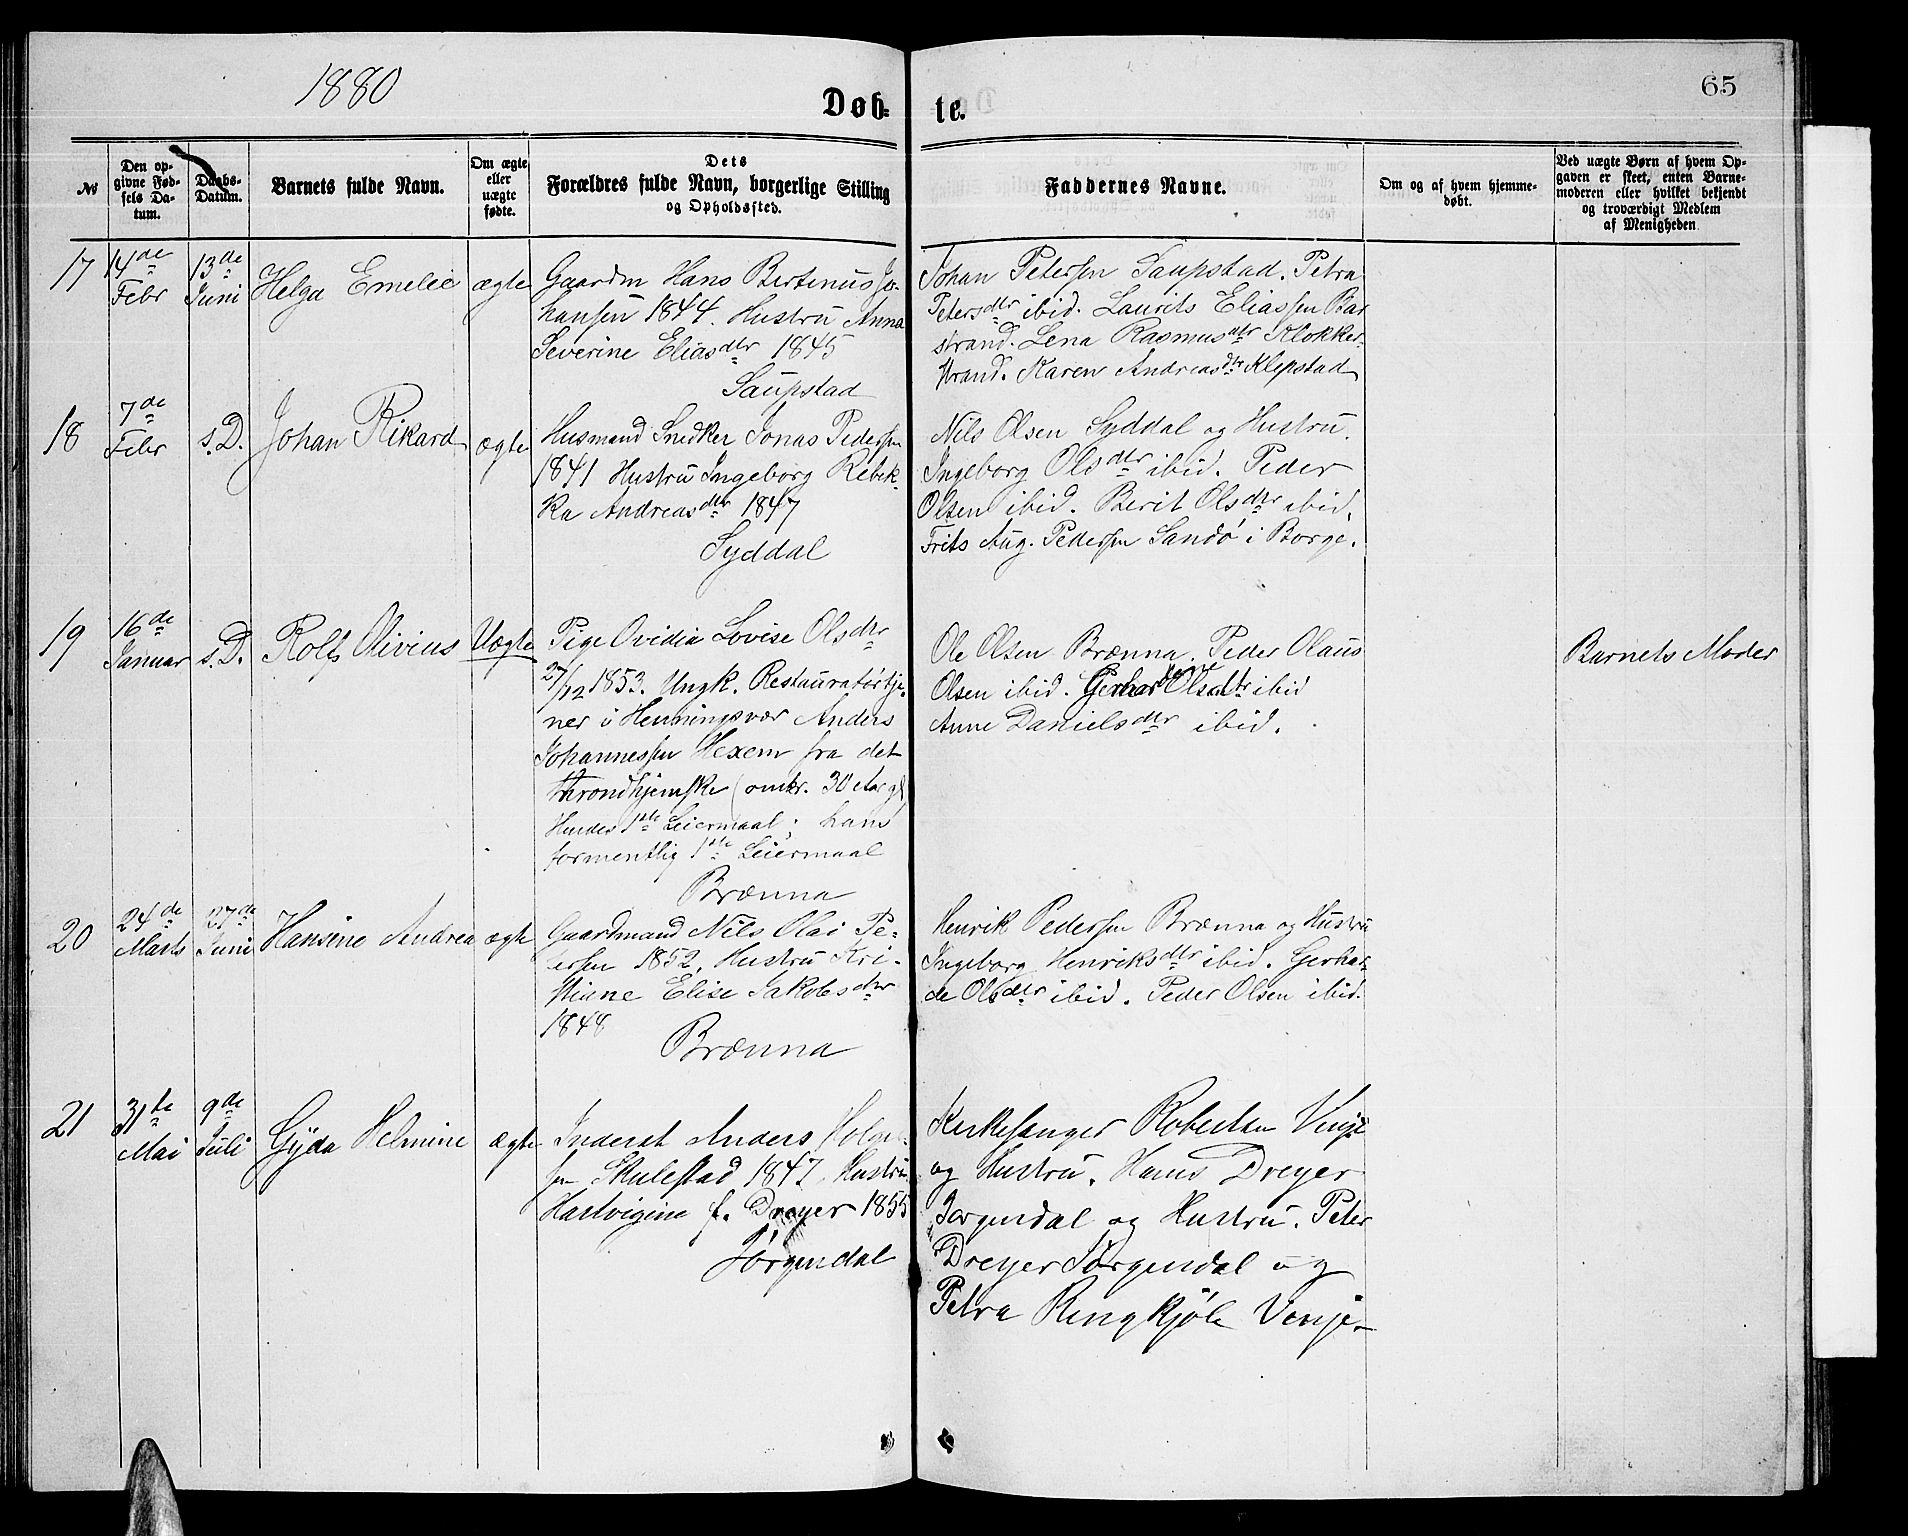 1880
Døb-
te.
65
№
Den op-
givne Fød-
sels Da-
tum.
Daabs-
Datum.
Barnets fulde Navn.
Om ægte
eller
uægte
fødte.
Dets
Forældres fulde Navn, borgerlige Stilling
og Opholdssted.
Faddernes Navne.
Om og af hvem hjemme-
døbt.
Ved uægte Børn af hvem Op-
gaven er skeet, enten Barne-
moderen eller hvilket bekjendt
og troværdigt Medlem
af Menigheden
17
14de
Febr
13de
Juni
Helga Emelie
ægte
Gaardm Hans Bertinus Jo-
hansen 1844. Hustru Anna
Severine Eliasdtr 1845
Saupstad
Johan Petersen Saupstad. Petra
Petersdtr ibid. Laurits Eliassen Bar
strand. Lena Rasmusdtr Klokker-
strand. Karen Andreasdtr Klepstad
18
7de
Febr
s.D.
Johan Rikard
ægte
Husmand Snedker Jonas Pedersen
1841 Hustru Ingeborg Rebek-
ka Andreasdtr 1847
Syddal
Nils Olsen Syddal og Hustru
Ingeborg Olsdtr ibid. Peder
Olsen ibid. Berit Olsdtr ibid.
Frits Aug. Pedersen Sandø i Borge.
19
16de
Januar
s.D.
Rolf Olivius
Uægte
Pige Ovidia Lovise Olsdtr
27/12 1853. Ungk. Restauratørtje-
ner i Henningsvær Anders
Johannessen Hexem fra det
throndhjemske (omkr. 30 Aar gl
Hendes 1ste Leiermaal; hans
formentlig 1ste Leiermaal
Brænna
Ole Olsen Brænna. Peder Olaus
Olsen ibid. Gerharde Olsdtr ibid
Anne Danielsdtr ibid.
Barnets Moder
20
24de
Marts
27de
Juni
Hansine Andrea
ægte
Gaardmand Nils Olai Pe-
tersen 1852, Hustru Kri-
stiane Elise Jakobsdtr
1848
Brænna
Henrik Pedersen Brænna og Hustru
Ingeborg Henriksdtr ibid. Gerhar-
de Olsdtr ibid. Peder Olsen ibid.
21
31te
Mai
9de
Juli
Gyda Helmine
ægte
Inderst Anders Holge-
sen Skulestad 1847, Hustru
Hartvigine f. Dreyer 1855
Jørgendal
Kirkesanger Robertsen Venje
og Hustru. Hans Dreyer
Jørgendal og Hustru. Peter
Dreyer Jørgendal og
Petra Ringkjøb Venje